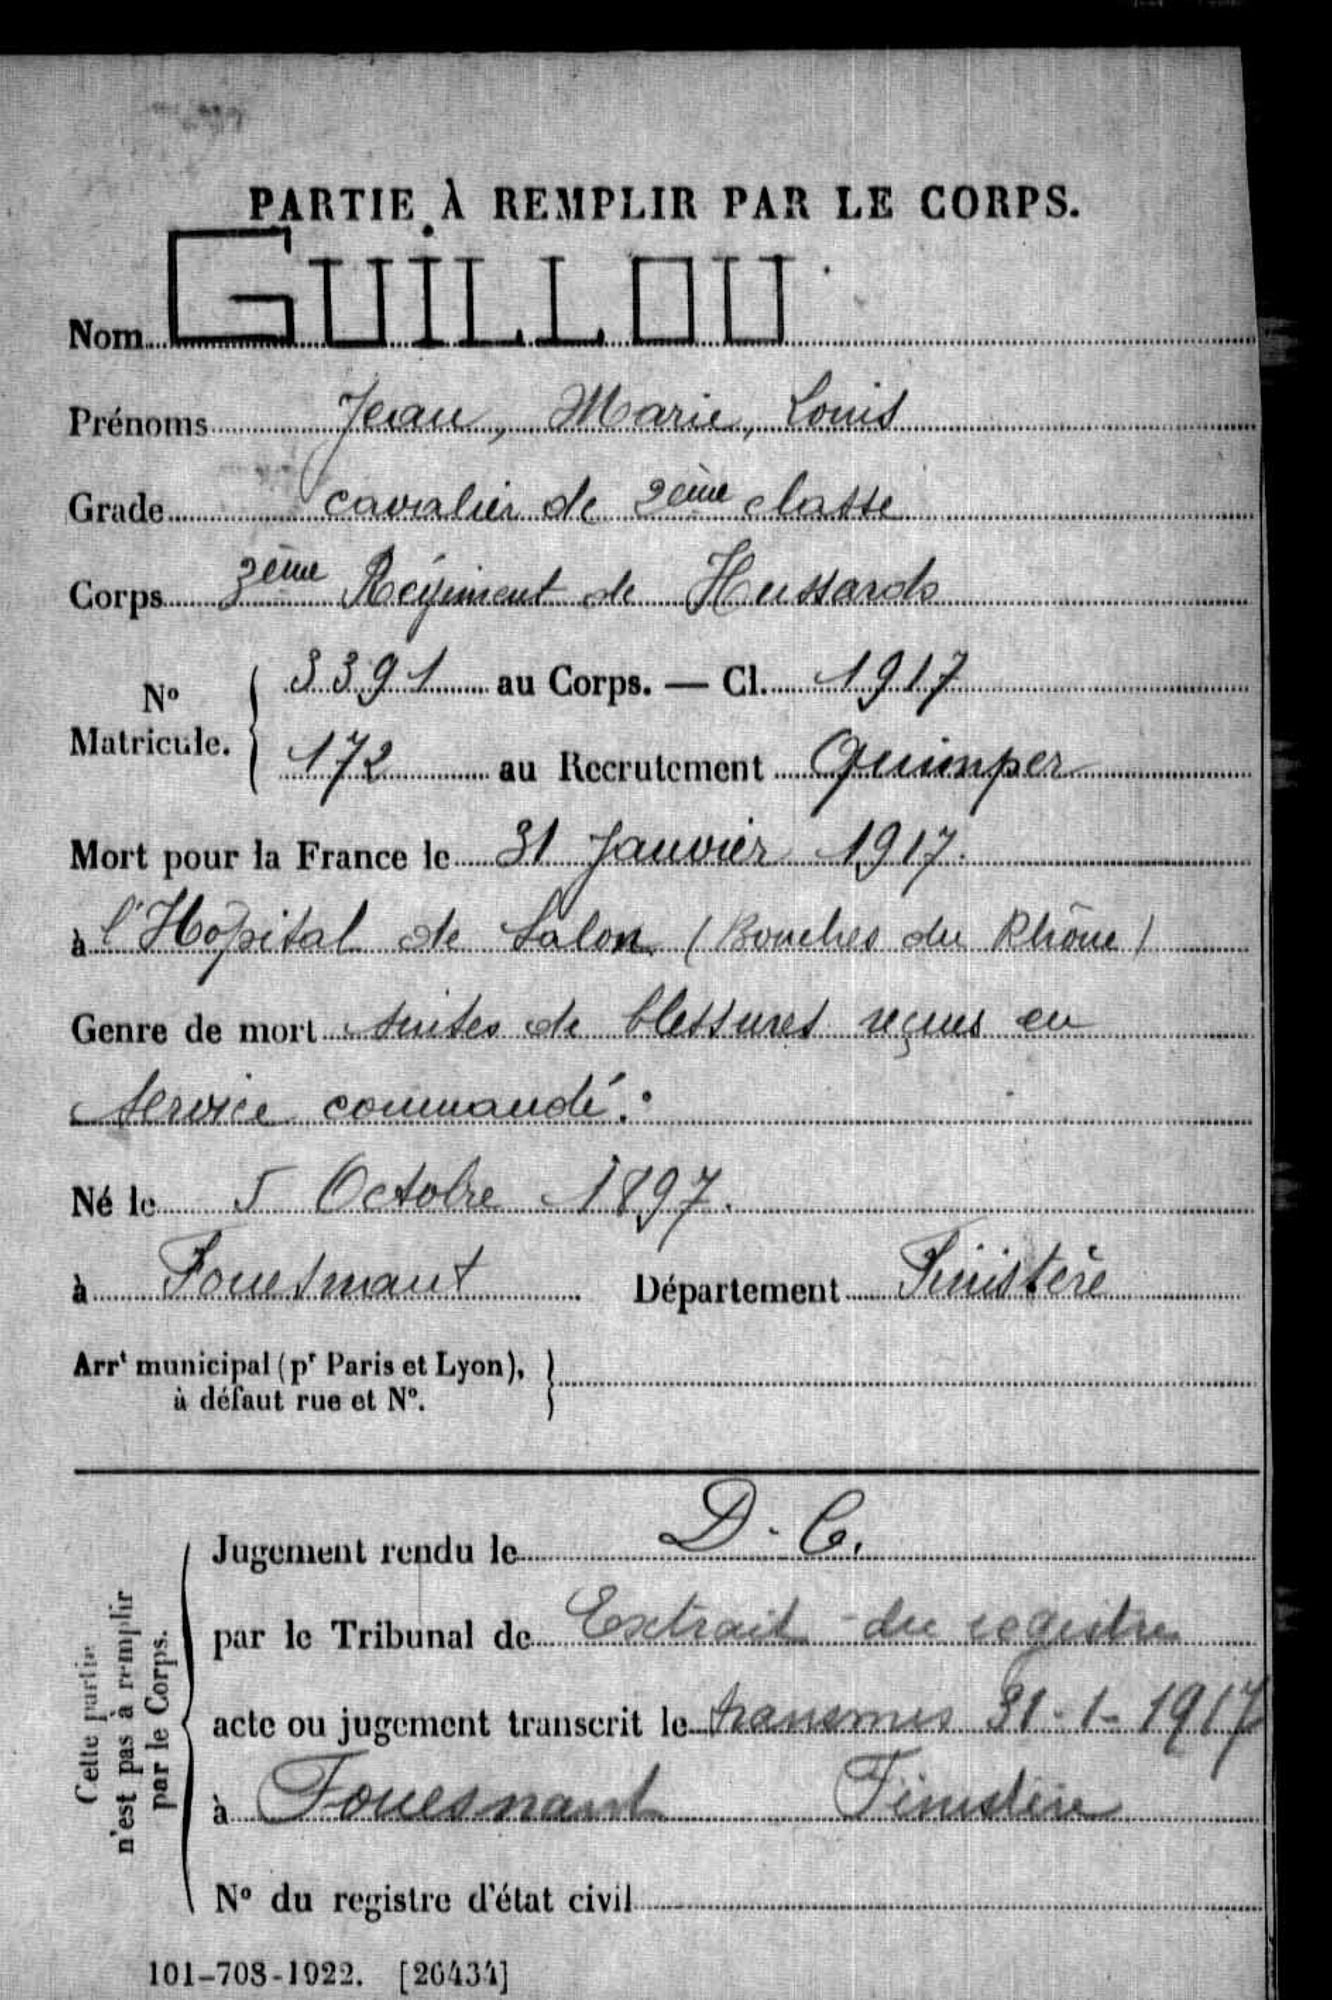 PARTIE À REMPLIR PAR LE CORPS.
Nom GUILLOU
Prénoms Jean, Marie, Louis
Grade cavalier de 2ème classe
Corps 3ème Régiment de Hussards
3391 au Corps. — Cl. 1917
N° Matricule.
172 au Recrutement Quimper
Mort pour la France le 31 Janvier 1917.
à l'Hôpital de Salon (Bouches du Rhône)
Genre de mort suites de blessures reçues en
service commandé.
Né le 5 Octobre 1897.
à Fouesnant Département Finistère
Arrt municipal (pr Paris et Lyon),
à défaut rue et N°.
Cette partie n'est pas à remplir par le Corps.
Jugement rendu le D. C.
par le Tribunal de Extrait du registre
acte ou jugement transcrit le transmis 31-1-1917
à Fouesnant Finistère
N° du registre d'état civil
101-708-1922. [26434]